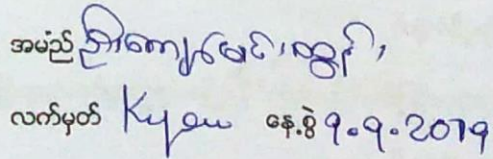 အမည် ဦးကျော်မင်းထွန်း
လက်မှတ် Kyaw နေ့စွဲ ၇.၇.2019